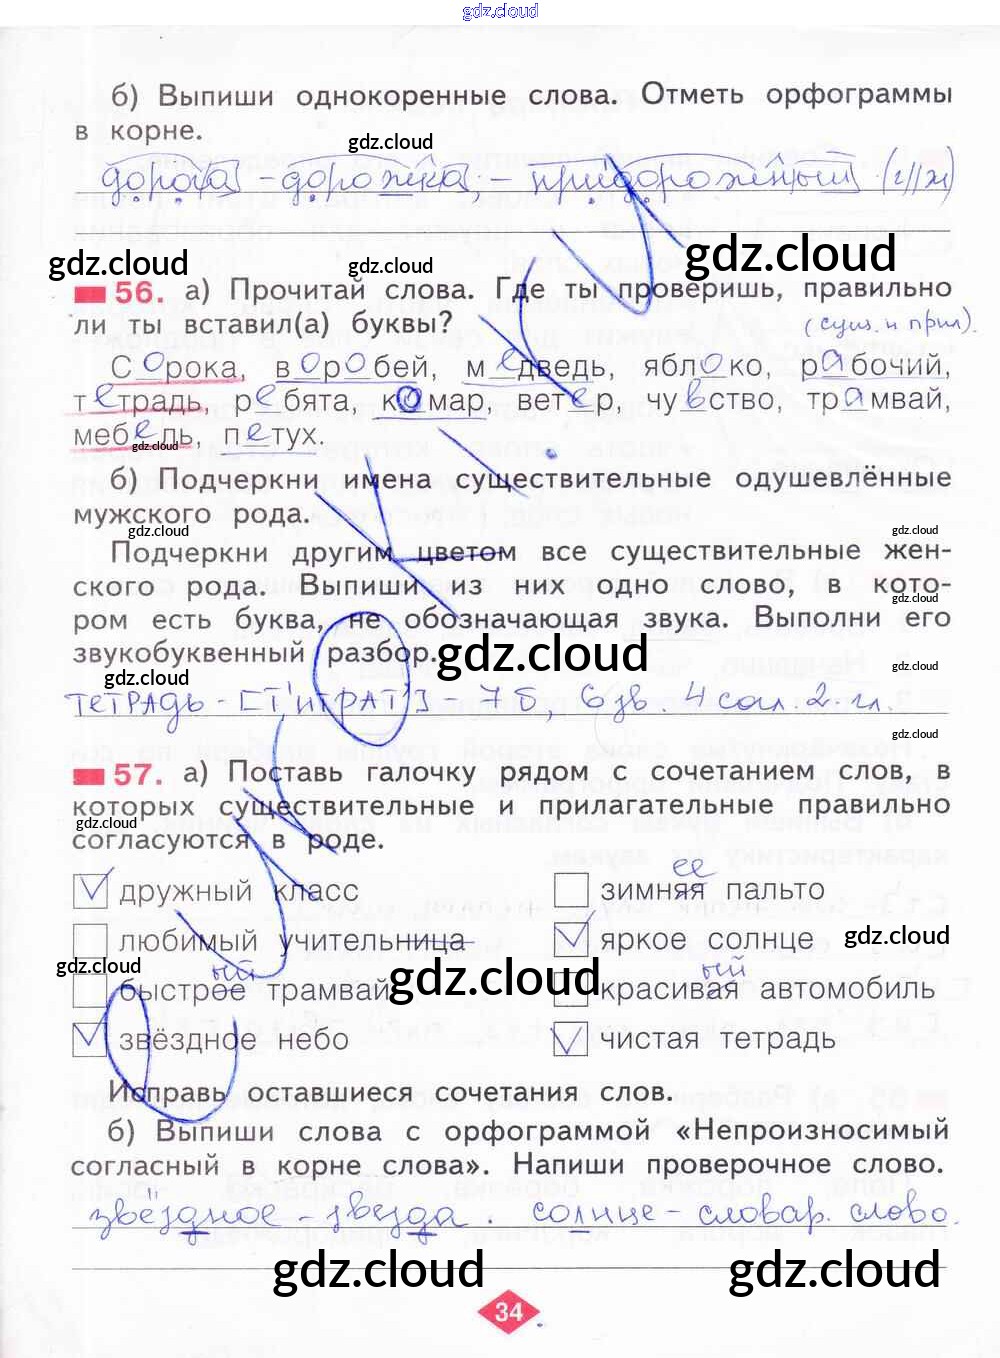 gdz.cloud
б) Выпиши однокоренные слова. Отметь орфограммы
в корне.
gdz.cloud
дорога - дорожка - придорожный (г//ж)
gdz.cloud gdz.cloud gdz.cloud
56. а) Прочитай слова. Где ты проверишь, правильно
ли ты вставил(а) буквы?
(сущ. и прил).
Сорока, воробей, медведь, яблоко, рабочий,
тетрадь, ребята, комар, ветер, чувство, трамвай,
мебель, петух.
gdz.cloud
б) Подчеркни имена существительные одушевлённые
мужского рода.
gdz.cloud gdz.cloud
Подчеркни другим цветом все существительные жен-
ского рода. Выпиши из них одно слово, в кото-
gdz.cloud
ром есть буква, не обозначающая звука. Выполни его
звукобуквенный разбор.
gdz.cloud gdz.cloud
gdz.cloud
тетрадь - [т'итрат'] - 7 б, 6 зв. 4 согл. 2 гл.
gdz.cloud
57. а) Поставь галочку рядом с сочетанием слов, в
которых существительные и прилагательные правильно
gdz.cloud
согласуются в роде.
ее
дружный класс зимняя пальто
любимый учительница яркое солнце
gdz.cloud gdz.cloud
ый ый
быстрое трамвай красивая автомобиль
gdz.cloud
звёздное небо чистая тетрадь
Исправь оставшиеся сочетания слов.
б) Выпиши слова с орфограммой «Непроизносимый
согласный в корне слова». Напиши проверочное слово.
звёздное - звезда. солнце - словар. слово.
gdz.cloud gdz.cloud
34